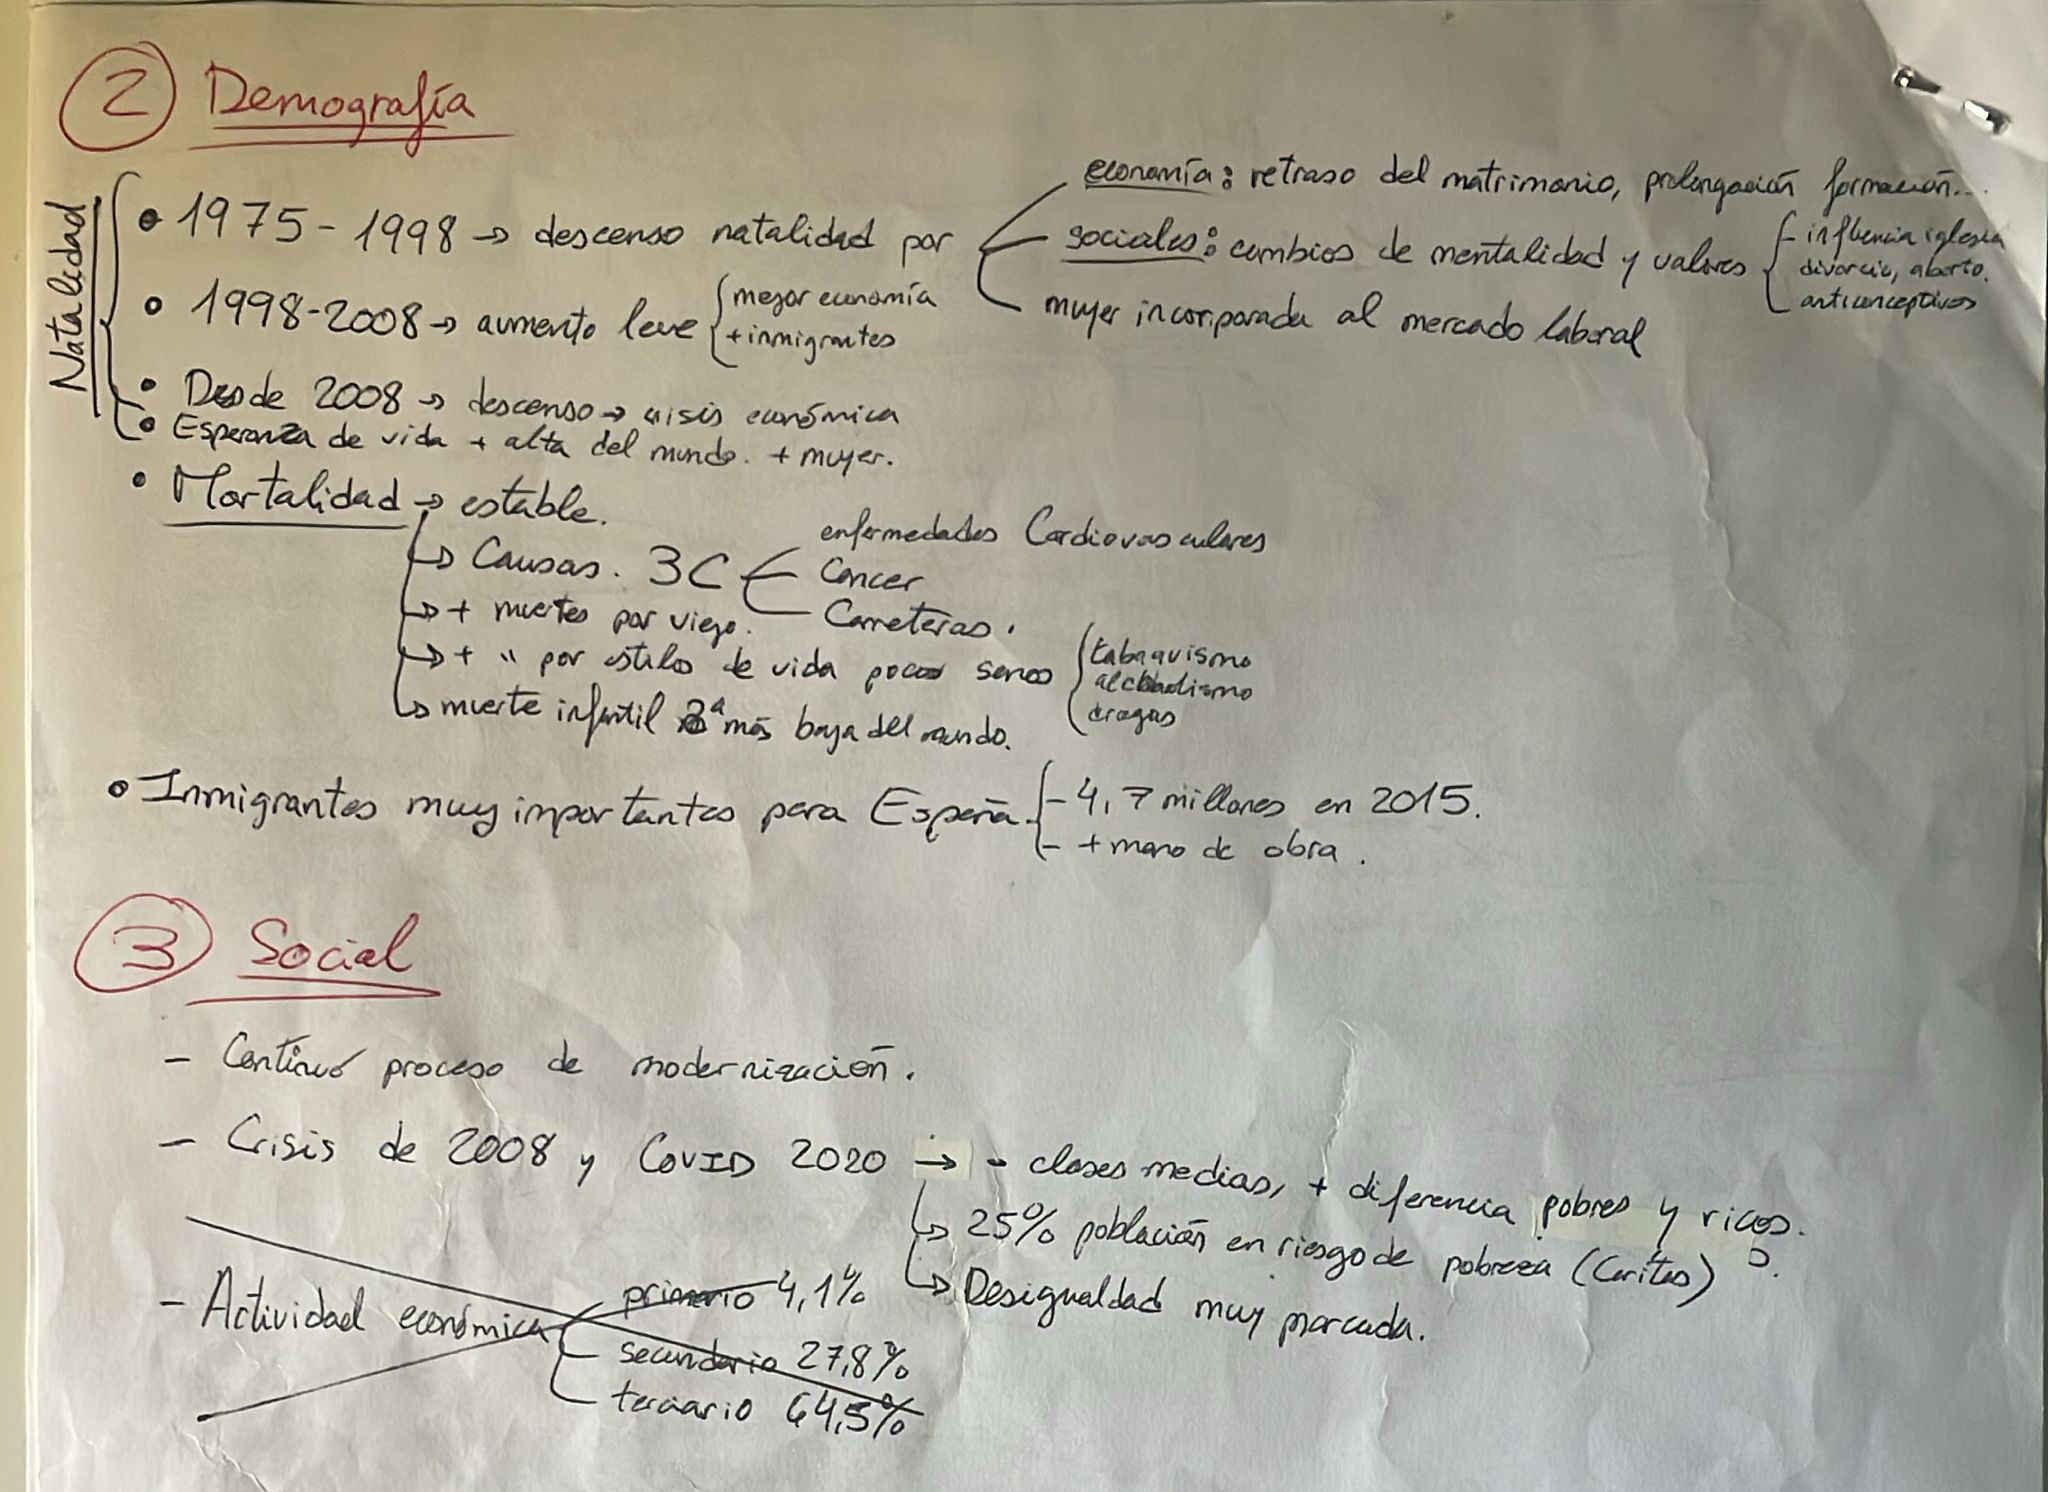 2 Demografía
Natalidad
• 1975 - 1998 → descenso natalidad por
economía: retraso del matrimonio, prolongación formación...
sociales: cambios de mentalidad y valores
- influencia iglesia
divorcio, aborto.
anticonceptivos
mujer incorporada al mercado laboral
• 1998-2008 → aumento leve
mejor economía
+ inmigrantes
• Desde 2008 → descenso → crisis económica
• Esperanza de vida + alta del mundo. + mujer.
• Mortalidad → estable.
↳ Causas. 3C
enfermedades Cardiovasculares
Cancer
Carreteras.
↳ + muertes por viejo.
↳ + " por estilos de vida poco sanos
tabaquismo
alcoholismo
drogas
↳ muerte infantil 3ª más baja del mundo.
• Inmigrantes muy importantes para España.
- 4,7 millones en 2015.
- + mano de obra.
3 Social
- Continuó proceso de modernización.
- Crisis de 2008 y COVID 2020 → - clases medias, + diferencia pobres y ricos.
↳ 25% población en riesgo de pobreza (Caritas)
↳ Desigualdad muy marcada.
- Actividad económica
primario 4,1%
secundario 27,8%
terciario 64,5%